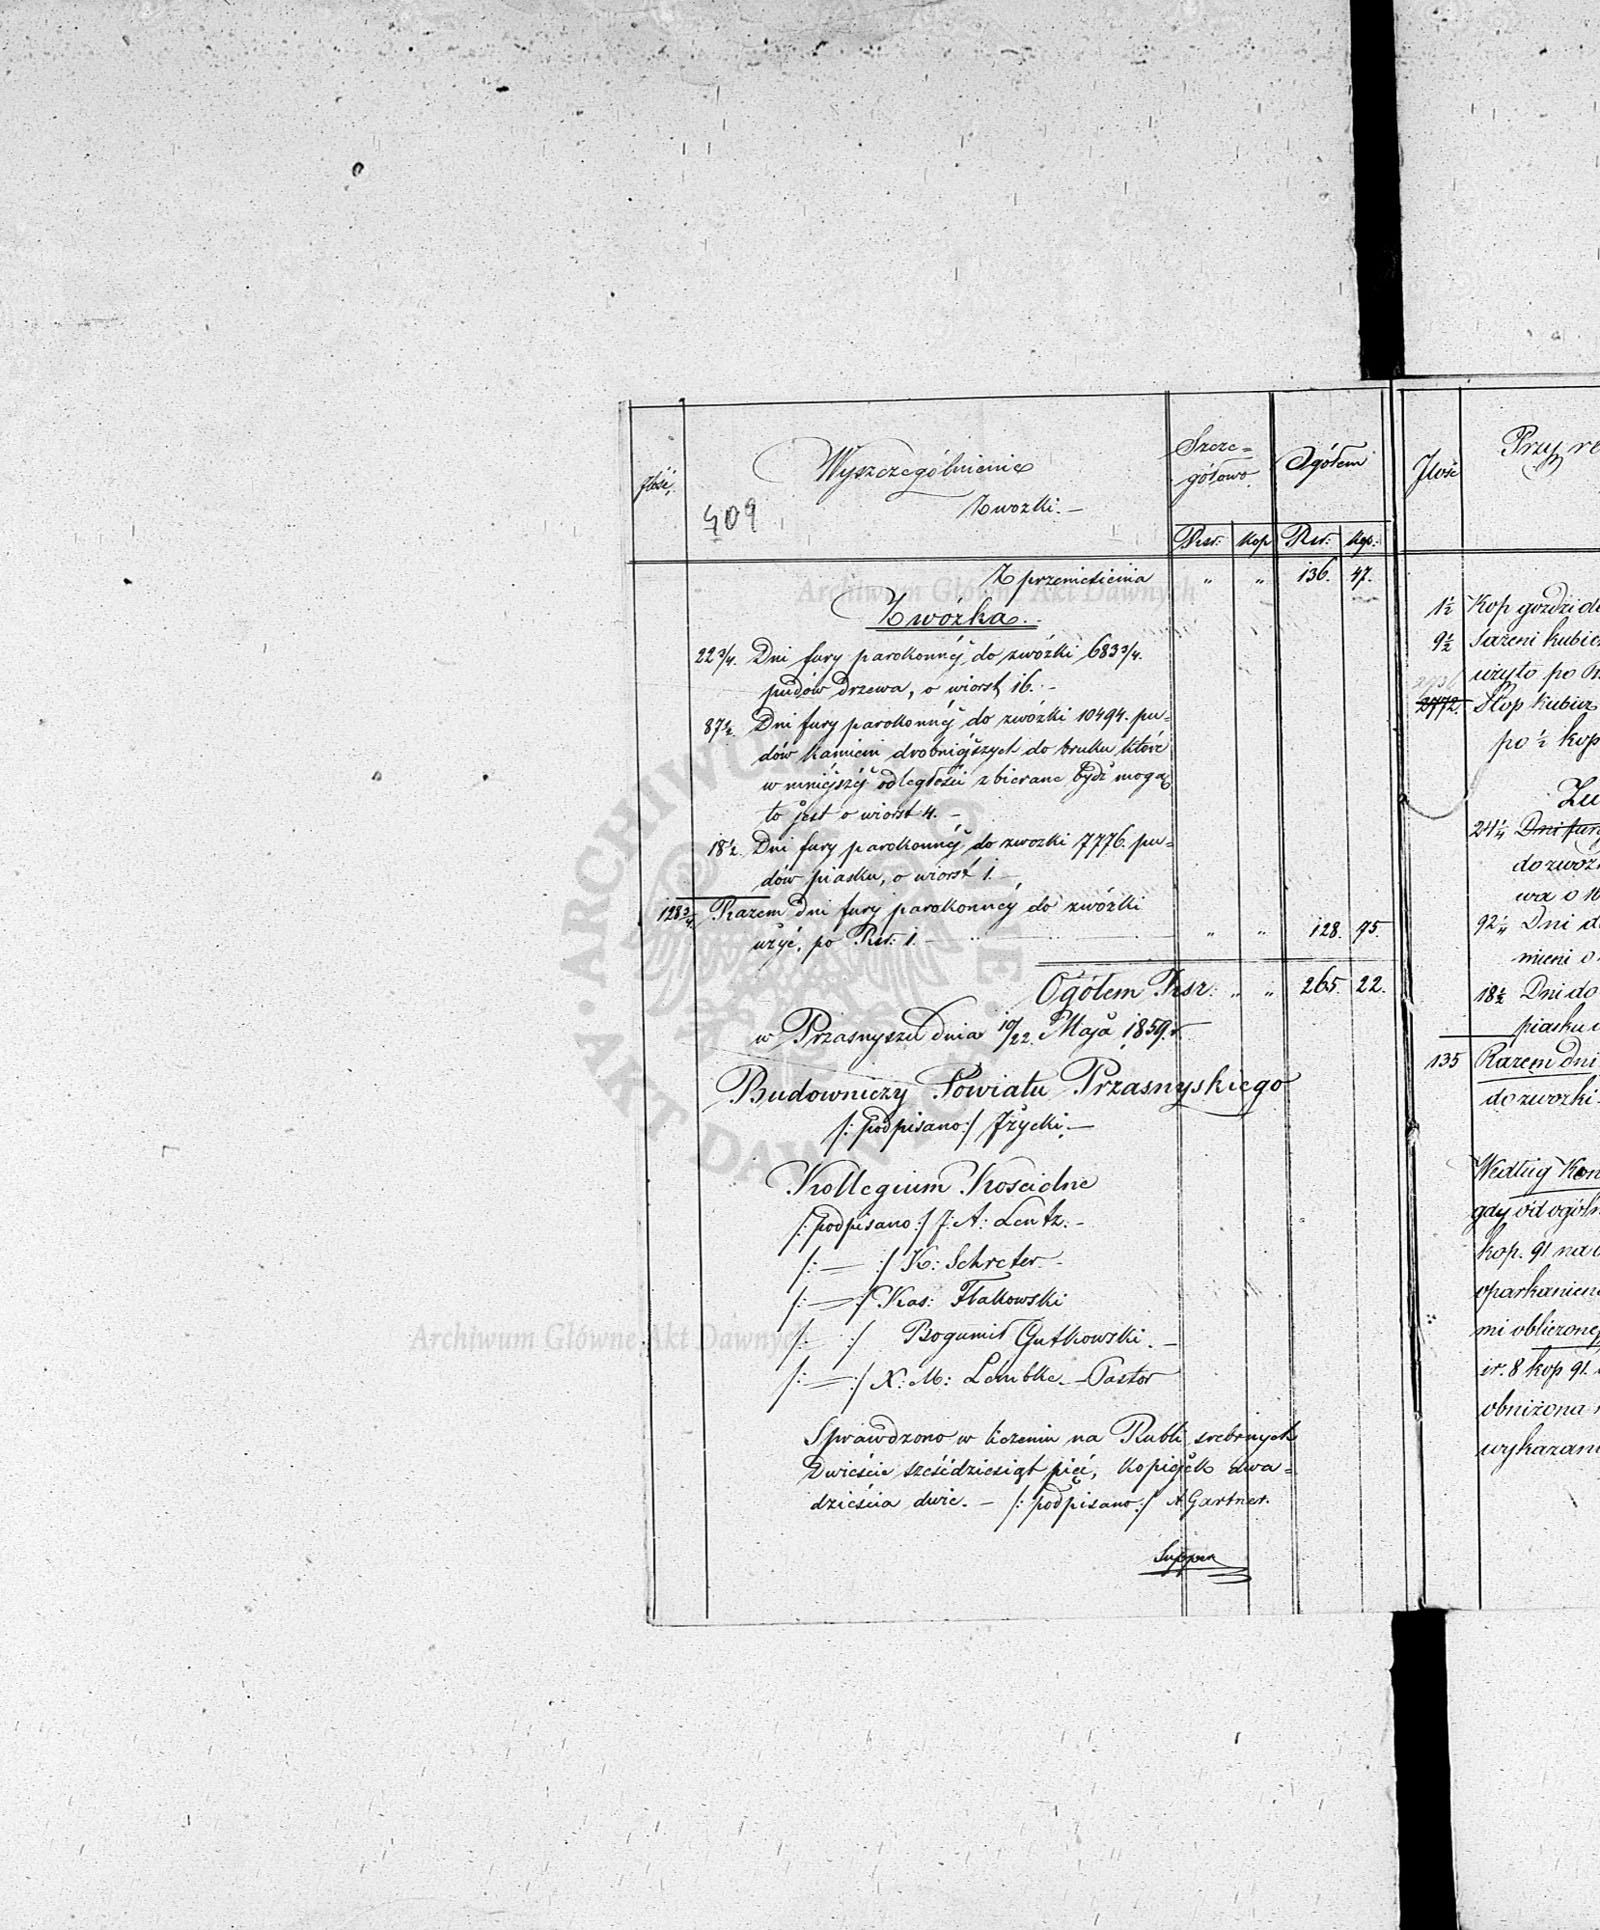 Ilość.
Wyszczególnienie
Zwozki. –
Szcze=
gółowo.
Ogółem
409
Rsr: Kop Rsr: Kop:
Z przeniesienia " " 136. 47.
Zwózka.
22 3/4. Dni fury parokonnéj do zwózki 683 3/4.
pudów drzewa, o wiorst 16. –
87 1/2 Dni fury parokonnéj do zwózki 10494. pu=
dów kamieni drobniejszych do bruku które
w mniejszéj odległości zbierane bydź mogą
to jest o wiorst 4. –
18 1/2 Dni fury parokonnéj do zwozki 7776. pu=
dów piasku, o wiorst 1. –
128 3/4 Razem dni fury parokonnéj do zwózki
użyć, po Rsr: 1. – " " 128. 75.
Ogółem Rsr: " " 265. 22.
w Przasnyszu dnia 10/22. Maja 1859. r.
Budowniczy Powiatu Przasnyskiego
/: podpisano :/ Iżycki. –
Kollegium Kościelne
/: podpisano :/ J: A: Lentz. –
/: — :/ K: Schreter. –
/: — :/ Kas: Flakowski
/: — :/ Bogumił Gutkowski. –
/: — :/ X: M: Lembke. – Pastor
Sprawdzono w liczeniu na Rubli srebrnych
Dwieście sześćdziesiąt pięć, kopiejek dwa=
dzieścia dwie. – /: podpisano :/ A Gartner.
Ilość
Przy re
1 1/2 Kop gozdzi do
9 1/2 Sażeni kubicz
użyto po
2772. Stop kubicz
po 1/2 kop
24 1/4 Dni fury
do zwózk
wa o 16
92 1/4 Dni do
mieni o
18 1/2 Dni do
piasku
135 Razem dni
do zwozki
Według Kon
gdy od ogóln
kop. 91 na
oparkanieni
mi obliczonej
sr. 8 kop 91.
obniżona
wykazan
Archiwum Główne Akt Dawnych
Archiwum Główne Akt Dawnych
ARCHIWUM GŁÓWNE
AKT DAWNYCH